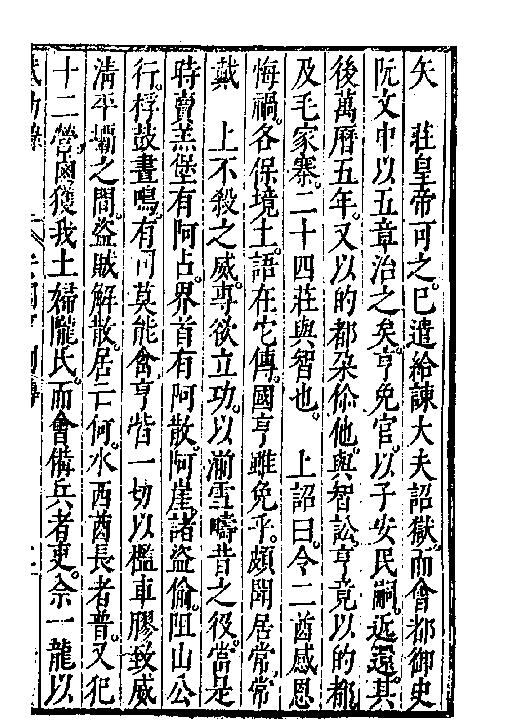 矢　莊皇帝可之已遣給諫大夫詔獄而會都御史
阮文中以五章治之矣亨免官以子安民嗣近還其
後萬曆五年又以的都朶你他與智訟亨竟以的都
及毛家寨二十四莊與智也　上詔曰令二酋感恩
悔禍各保境土語在它傳國亨雖免乎頗閒居常常
戴　上不殺之威專欲立功以湔雪疇昔之役當是
時賣羔堡有阿占界首有阿散阿崖諸盜偷阻山公
行桴鼓晝鳴有司莫能禽亨皆一切以檻車膠致威
淸平壩之間盜賊解散居亡何水西酋長者普又犯
十二營鹵獲我土婦隴氏而會備兵者吏佘一龍以
武功錄